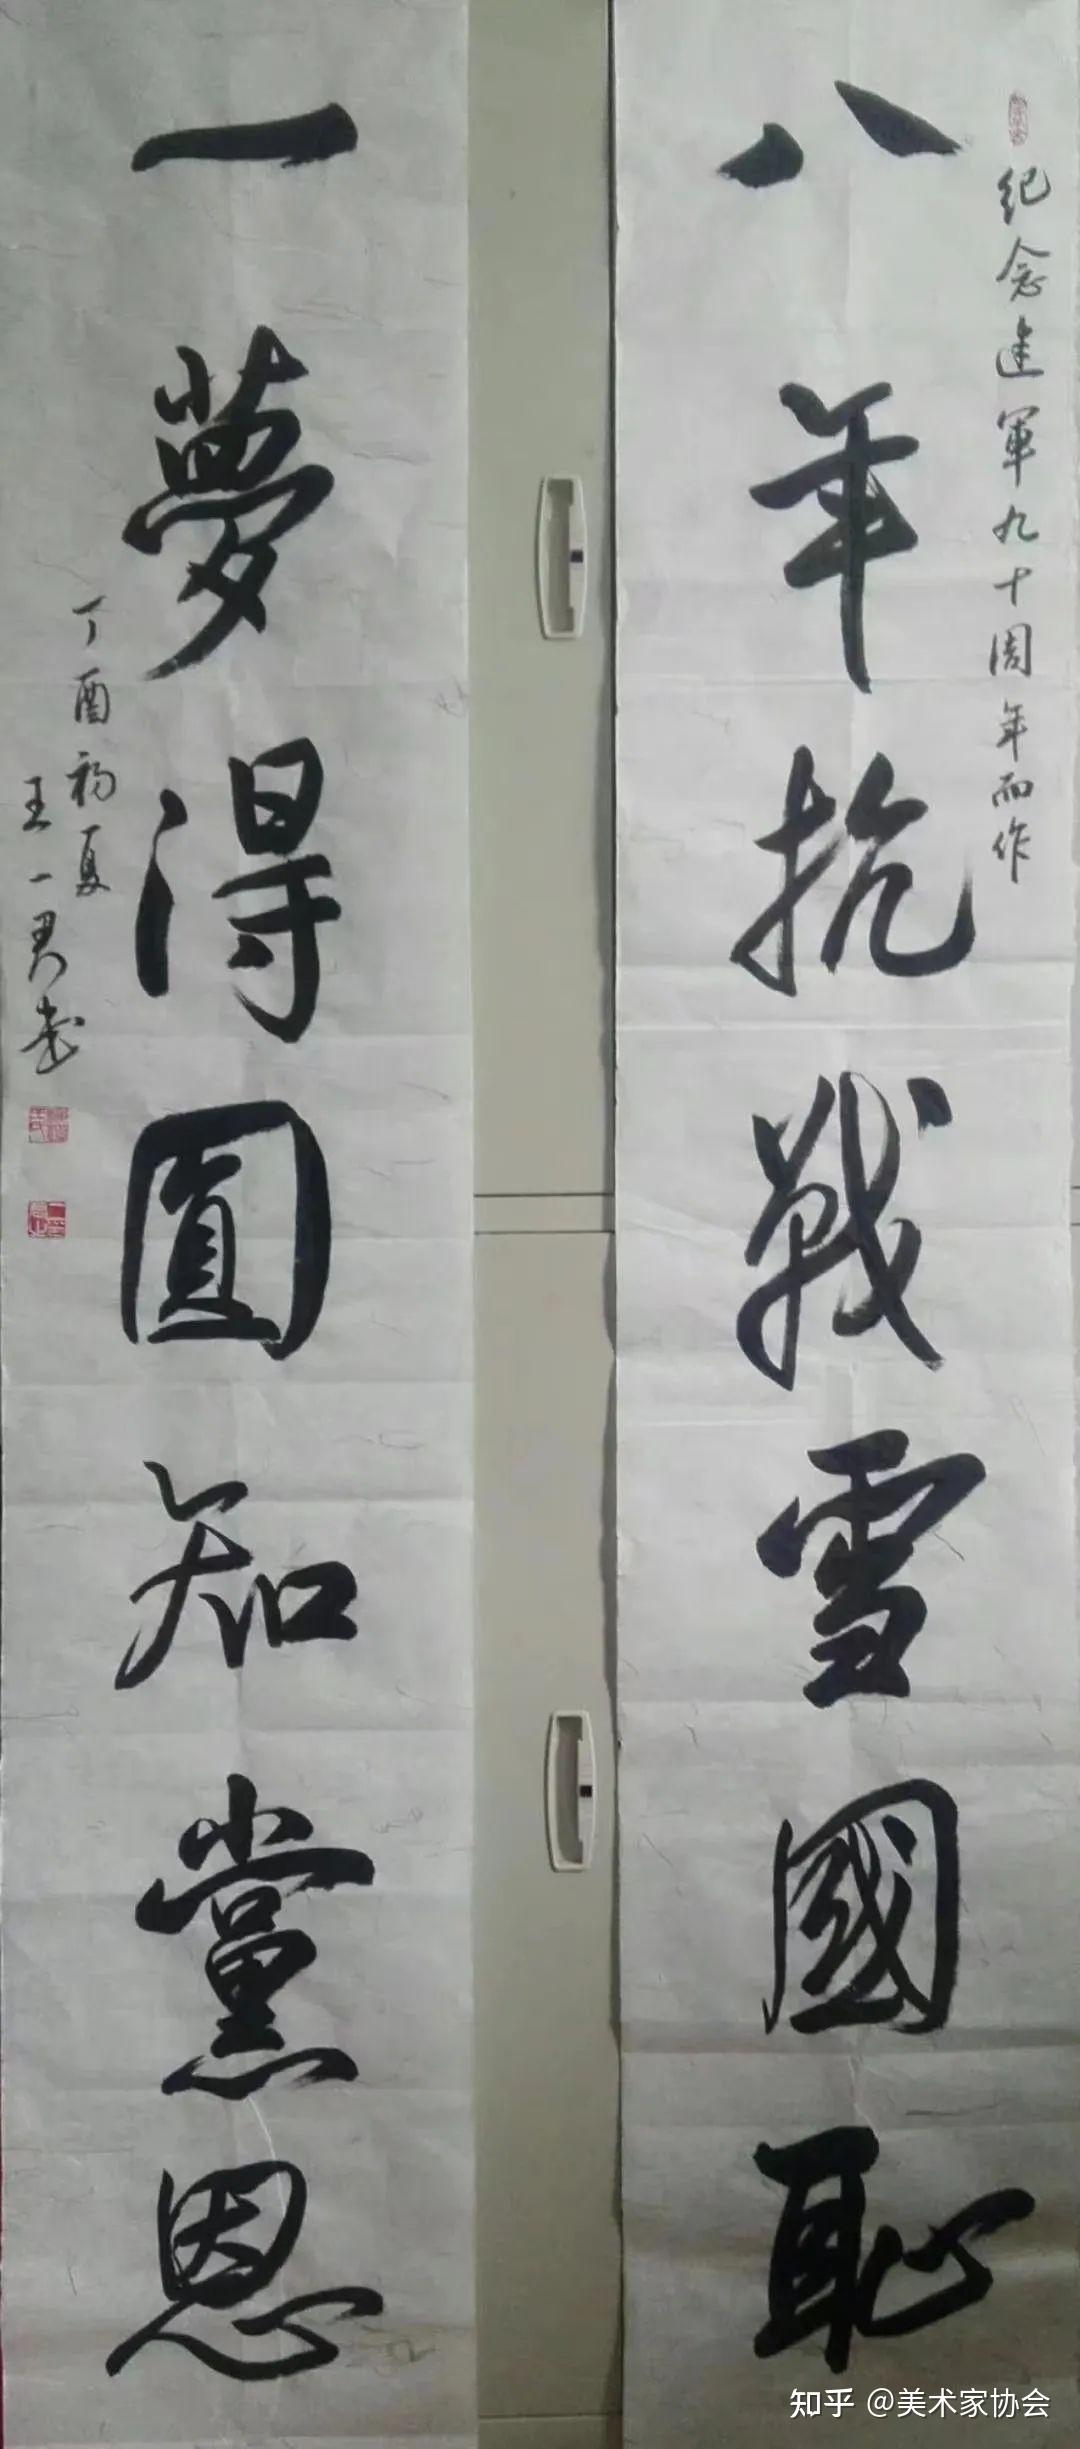 紀念建軍九十周年而作
八年抗戰雪國恥
一夢得圓知黨恩
丁酉初夏
王一君書
知乎 @美术家协会